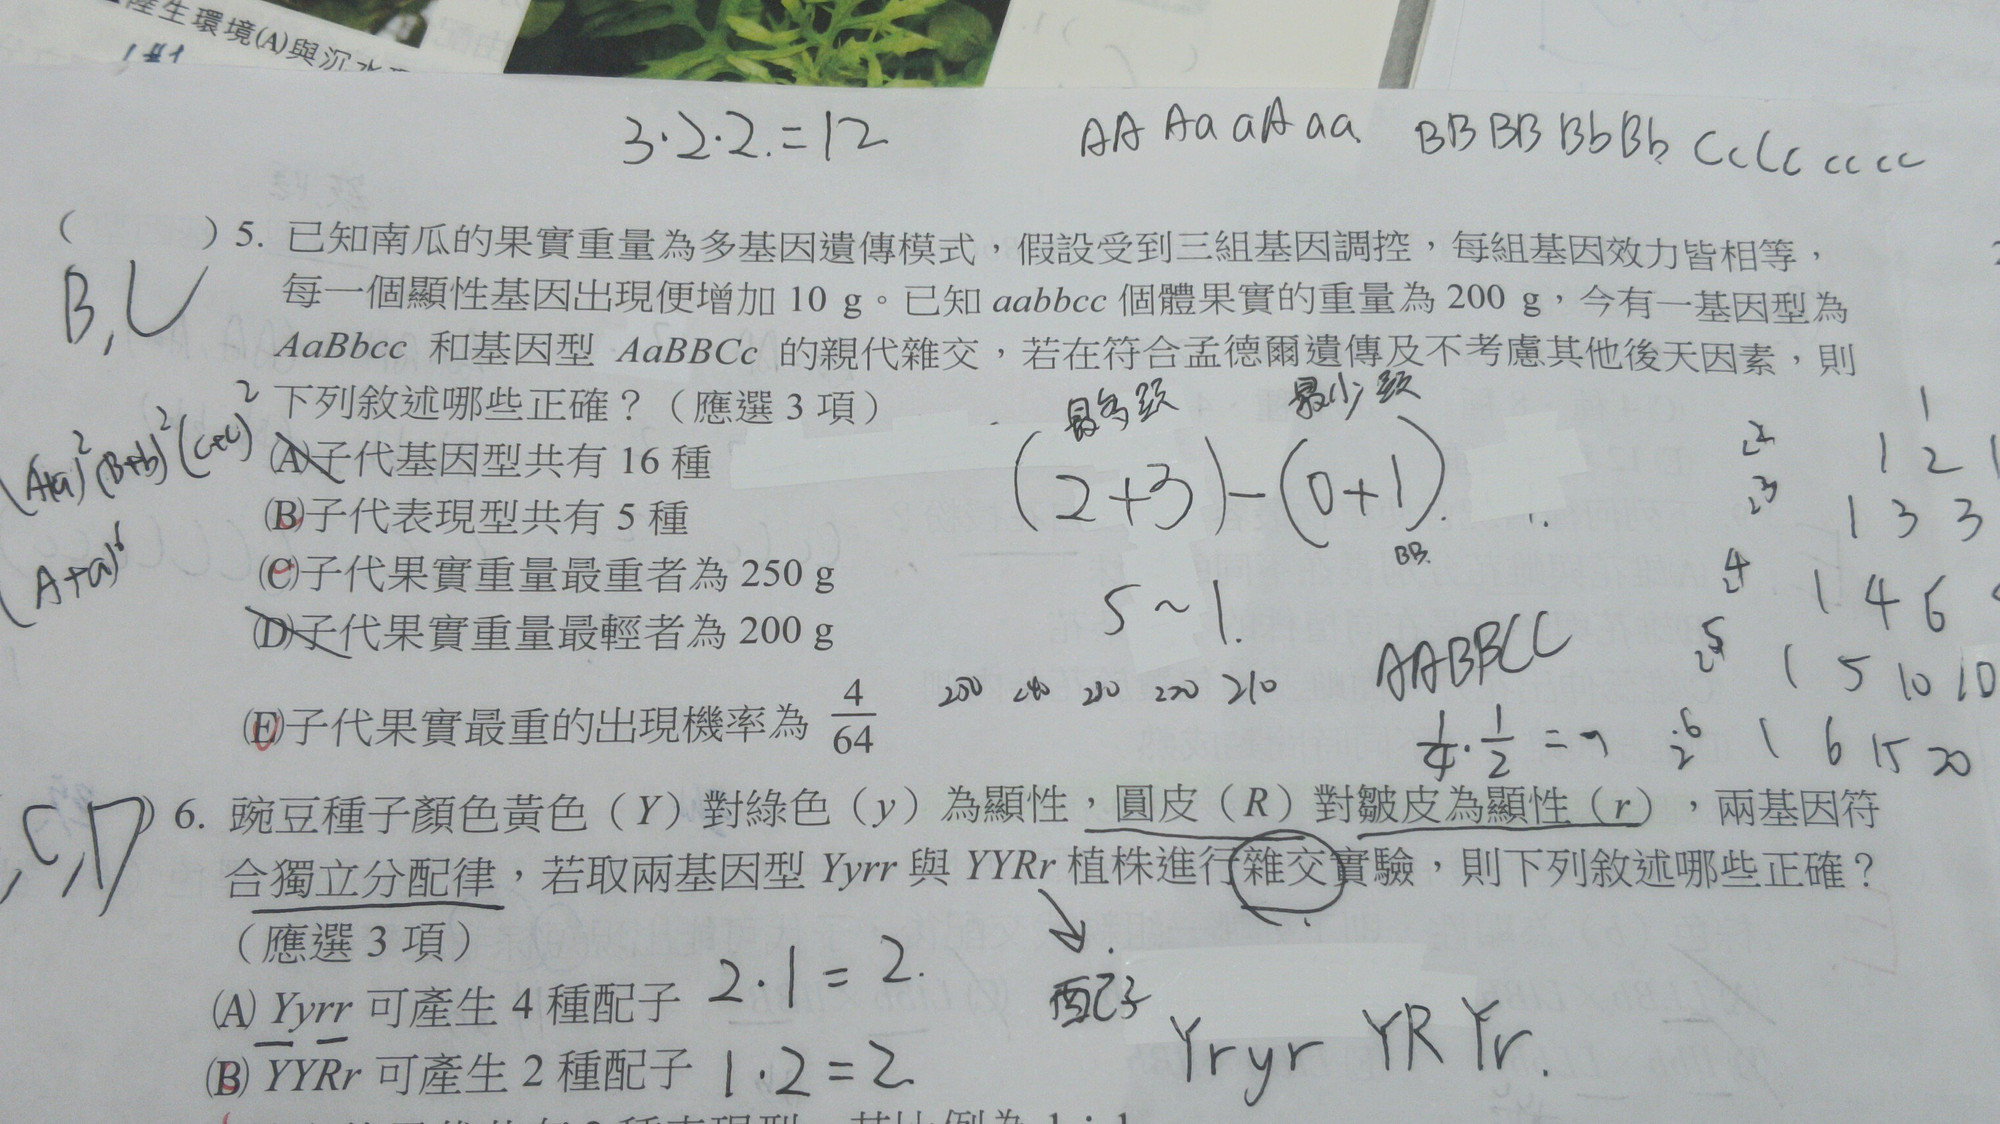 產生環境(A)與沉水
3·2·2.=12
AA Aa aA aa BB BB Bb Bb Cc Cc cc cc
( ) 5. 已知南瓜的果實重量為多基因遺傳模式，假設受到三組基因調控，每組基因效力皆相等，
每一個顯性基因出現便增加 10 g。已知 aabbcc 個體果實的重量為 200 g，今有一基因型為
B,C
AaBbcc 和基因型 AaBBCc 的親代雜交，若在符合孟德爾遺傳及不考慮其他後天因素，則
下列敘述哪些正確？（應選 3 項）
最多顯 最少顯
(2+3)-(0+1).
BB.
5~1.
(A+a)²(B+b)²(C+c)²
(A+a)⁶
(A)子代基因型共有 16 種
(B)子代表現型共有 5 種
(C)子代果實重量最重者為 250 g
(D)子代果實重量最輕者為 200 g
(E)子代果實最重的出現機率為 4/64
250 240 230 220 210
AABBCC
1/4·1/2=
1
2² 1 2 1
2³ 1 3 3
2⁴ 1 4 6
2⁵ 1 5 10 10
2⁶ 1 6 15 20
,C,D
) 6. 豌豆種子顏色黃色（Y）對綠色（y）為顯性，圓皮（R）對皺皮為顯性（r），兩基因符
合獨立分配律，若取兩基因型 Yyrr 與 YYRr 植株進行雜交實驗，則下列敘述哪些正確？
（應選 3 項）
(A) Yyrr 可產生 4 種配子 2·1=2.
配子
Yr yr YR Yr.
(B) YYRr 可產生 2 種配子 1·2=2